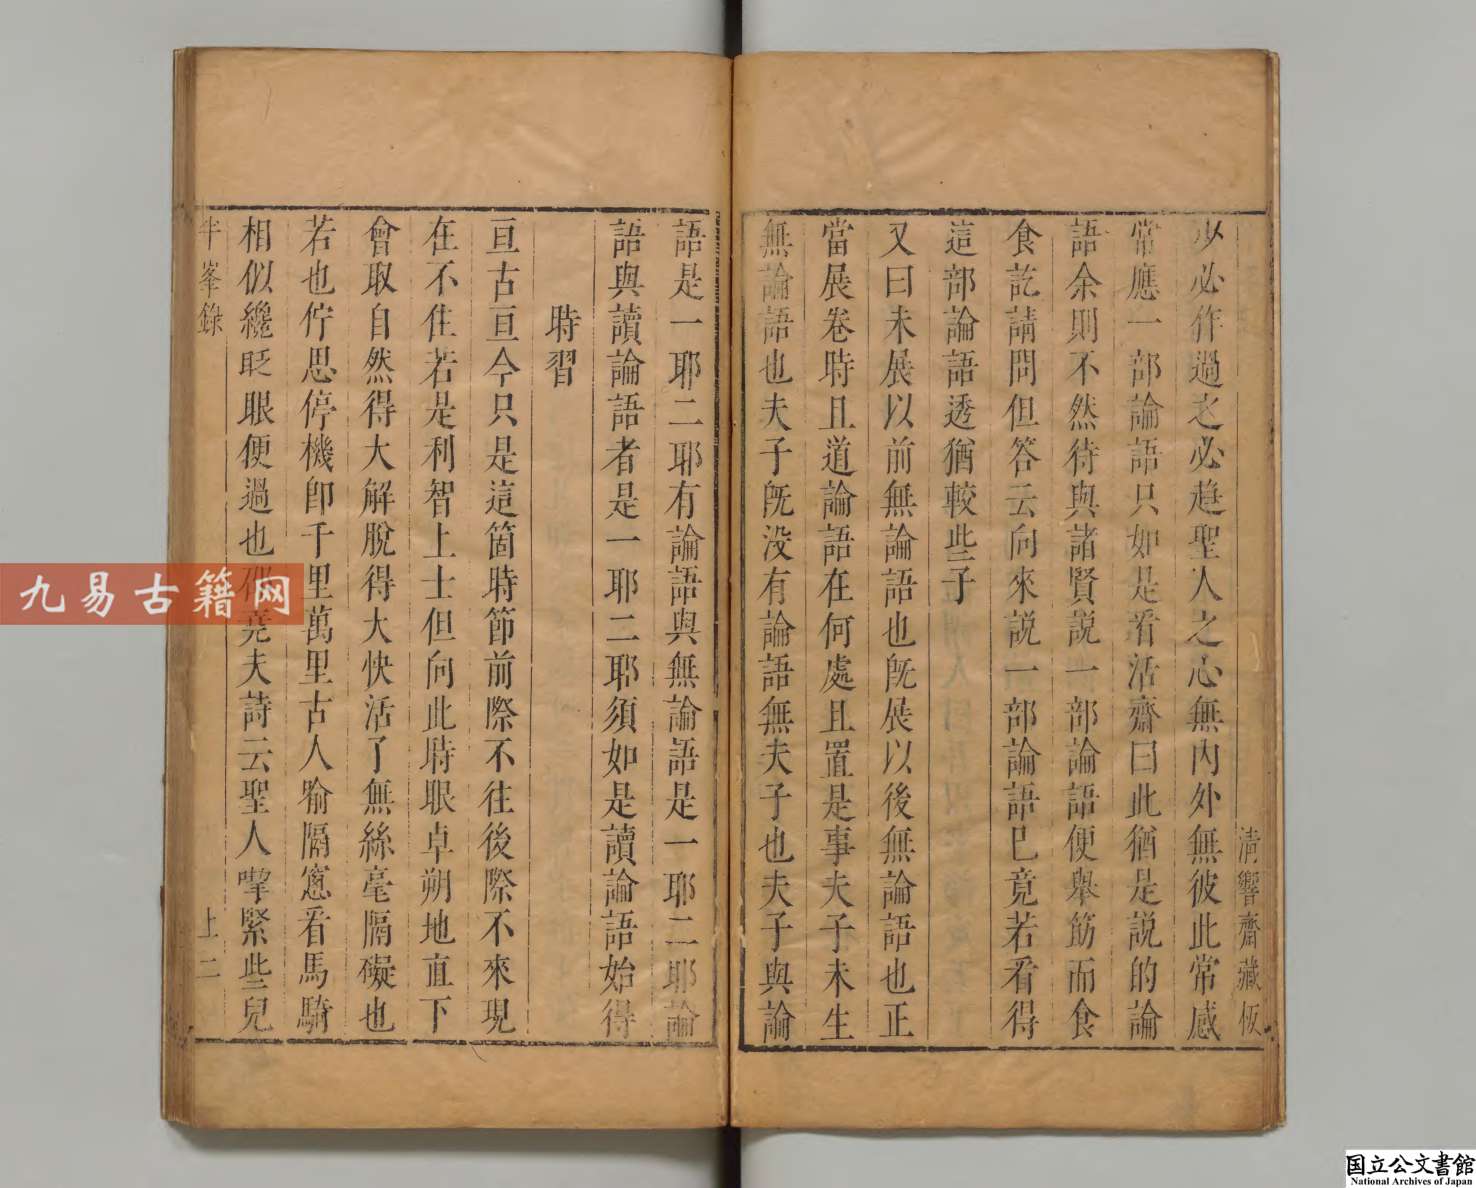 少必作過之必趨聖人之心無内外無彼此常感
常應一部論語只如是看活齋曰此猶是説的論
語余則不然待與諸賢説一部論語便舉筯而食
食訖請問但答云向來説一部論語已竟若看得
這部論語透猶較些子
又曰未展以前無論語也旣展以後無論語也正
當展卷時且道論語在何處且置是事夫子未生
無論語也夫子旣没有論語無夫子也夫子與論
清響齋藏板
語是一耶二耶有論語與無論語是一耶二耶論
語與讀論語者是一耶二耶須如是讀論語始得
時習
亘古亘今只是這箇時節前際不往後際不來現
在不住若是利智上士但向此時眼卓朔地直下
會取自然得大解脫得大快活了無絲毫隔礙也
若也佇思停機卽千里萬里古人喻隔窻看馬騎
相似纔眨眼便過也邵堯夫詩云聖人喫緊些兒
半峯錄
上二
九易古籍网
国立公文書館
National Archives of Japan